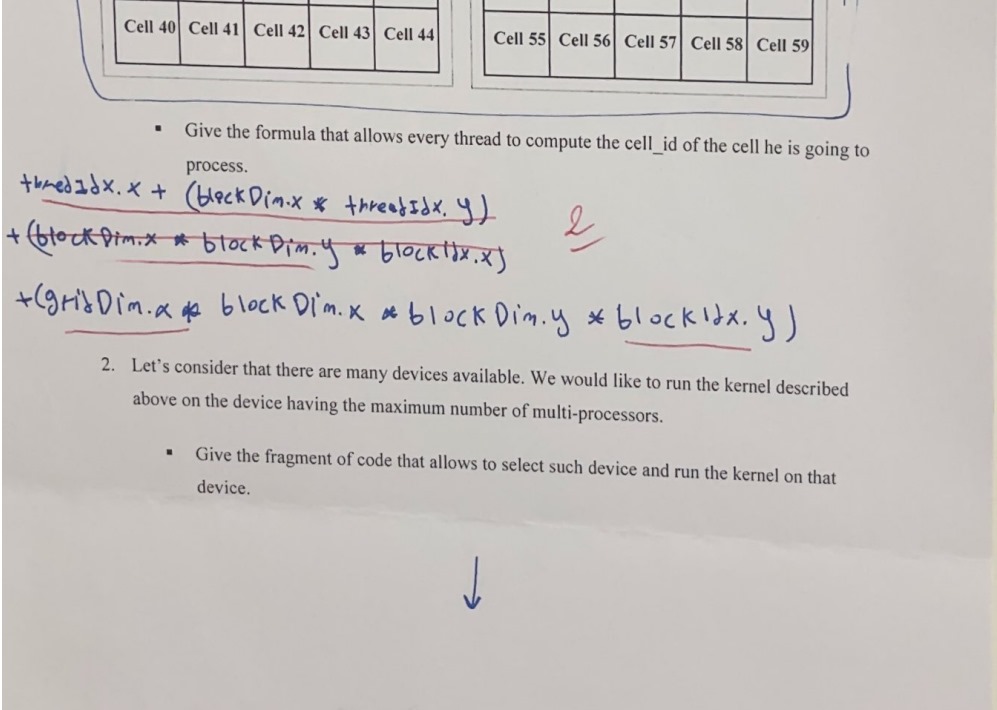 Cell 40 Cell 41 Cell 42 Cell 43 Cell 44
Cell 55 Cell 56 Cell 57 Cell 58 Cell 59
▪ Give the formula that allows every thread to compute the cell_id of the cell he is going to
process.
thredIdx.x + (blockDim.x * threadIdx.y)
+ (blockDim.x * blockDim.y * blockIdx.x)
2
+(gridDim.x * blockDim.x * blockDim.y * blockIdx.y)
2. Let's consider that there are many devices available. We would like to run the kernel described
above on the device having the maximum number of multi-processors.
▪ Give the fragment of code that allows to select such device and run the kernel on that
device.